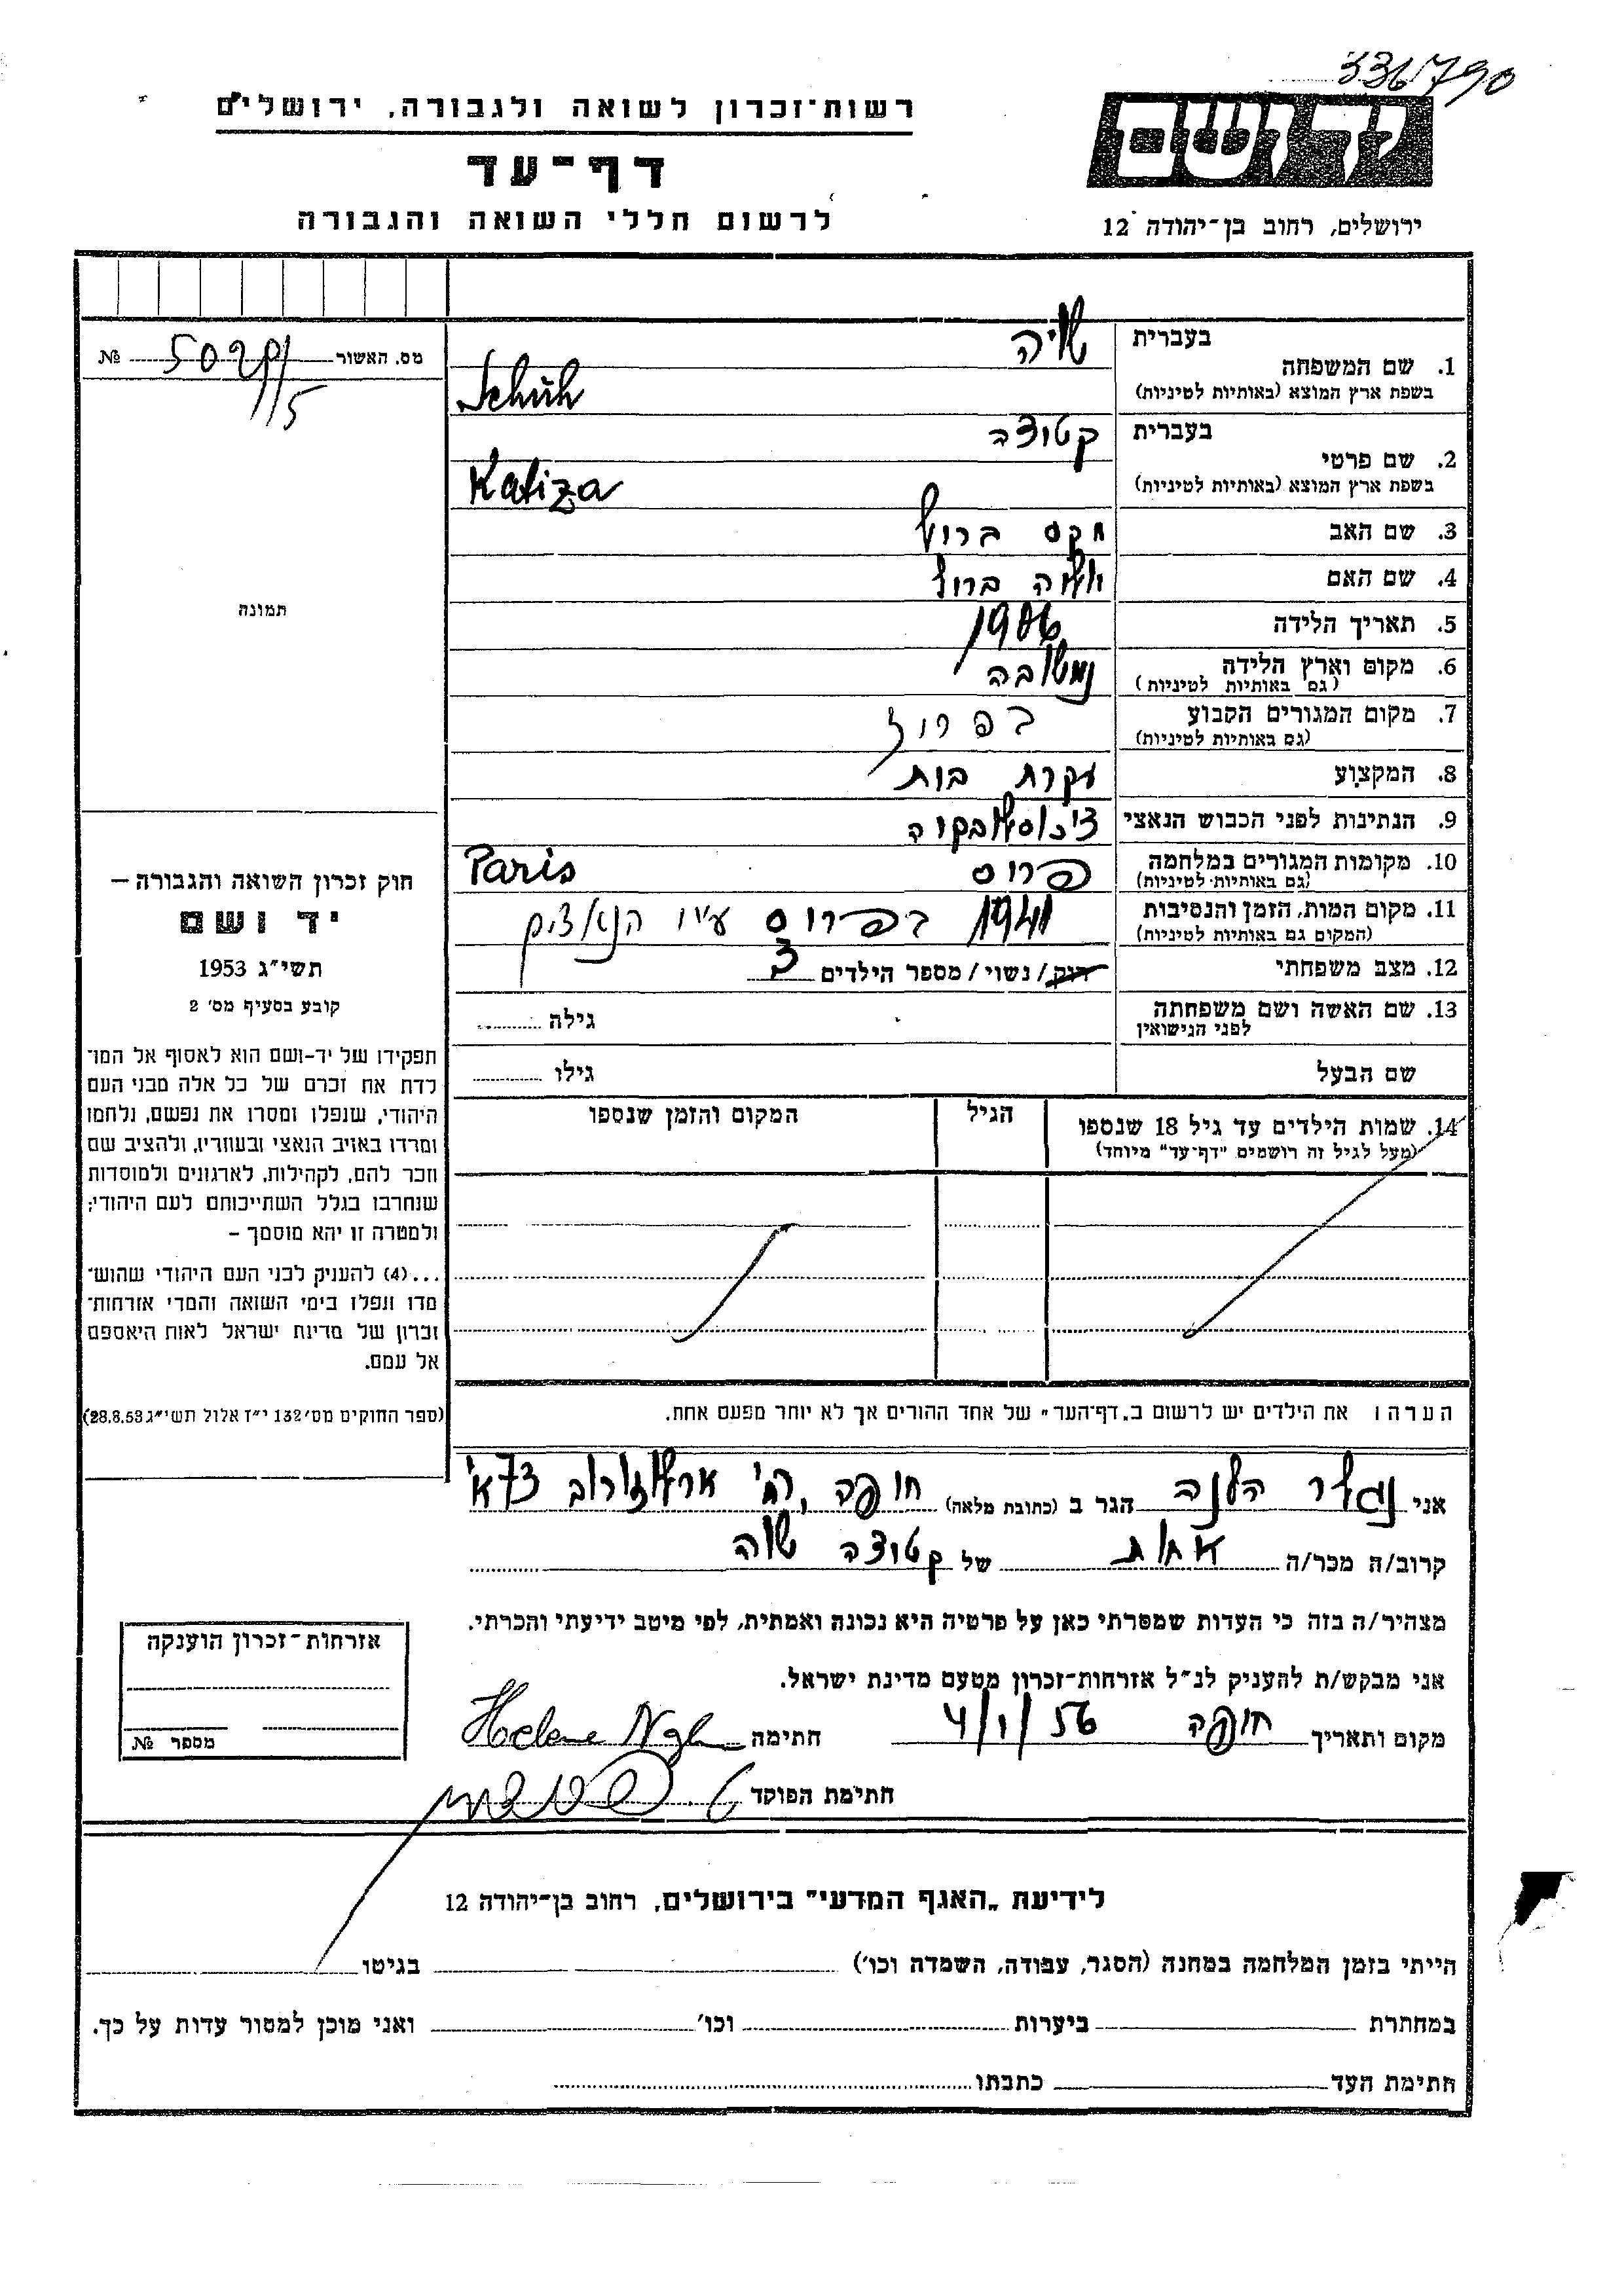 336790
רשות-זכרון לשואה ולגבורה, ירושלים
דף-עד
לרשום חללי השואה והגבורה
יד ושם
ירושלים, רחוב בן-יהודה 12
מס. האשור №
1. שם המשפחה
בעברית
בשפת ארץ המוצא (באותיות לטיניות) Schüh
2. שם פרטי
בעברית קטיצה
בשפת ארץ המוצא (באותיות לטיניות) Katiza
3. שם האב
4. שם האם
5. תאריך הלידה
6. מקום וארץ הלידה
(גם באותיות לטיניות)
7. מקום המגורים הקבוע
(גם באותיות לטיניות)
8. המקצוע עקרת בית
9. הנתינות לפני הכבוש הנאצי
10. מקומות המגורים במלחמה פריס Paris
(גם באותיות לטיניות)
11. מקום המות, הזמן והנסיבות 1941 בפריס ע״י הנאצים
(המקום גם באותיות לטיניות)
12. מצב משפחתי רוק/נשוי/מספר הילדים 3
13. שם האשה ושם משפחתה
לפני הנישואין
גילה
שם הבעל גילו
14. שמות הילדים עד גיל 18 שנספו
(מעל לגיל זה רושמים "דף-עד" מיוחד)
הגיל
המקום והזמן שנספו
הערה: את הילדים יש לרשום ב„דף-העד" של אחד ההורים אך לא יותר מפעם אחת.
תמונה
חוק זכרון השואה והגבורה —
יד ושם
תשי"ג 1953
קובע בסעיף מס' 2
תפקידו של יד-ושם הוא לאסוף אל המו-
לדת את זכרם של כל אלה מבני העם
היהודי, שנפלו ומסרו את נפשם, נלחמו
ומרדו באויב הנאצי ובעוזריו, ולהציב שם
וזכר להם, לקהילות, לארגונים ולמוסדות
שנחרבו בגלל השתייכותם לעם היהודי;
ולמטרה זו יהא מוסמך —
...(4) להעניק לבני העם היהודי שהוש-
מדו ונפלו בימי השואה והמרי אזרחות-
זכרון של מדינת ישראל לאות היאספם
אל עמם.
(ספר החוקים מס' 132 י"ז אלול תשי"ג 28.8.53)
אני הלנה הגר ב (כתובת מלאה) חיפה, רח' ארלוזורוב 73א'
קרוב/ה מכר/ה אחות של קטיצה
מצהיר/ה בזה כי העדות שמסרתי כאן על פרטיה היא נכונה ואמתית, לפי מיטב ידיעתי והכרתי.
אני מבקש/ת להעניק לנ"ל אזרחות-זכרון מטעם מדינת ישראל.
מקום ותאריך חיפה 4/1/56 חתימה Helene
חתימת הפוקד
אזרחות-זכרון הוענקה
מספר №
לידיעת „האגף המדעי" בירושלים, רחוב בן-יהודה 12
הייתי בזמן המלחמה במחנה (הסגר, עבודה, השמדה וכו') בגיטו
במחתרת ביערות וכו' ואני מוכן למסור עדות על כך.
חתימת העד כתבתו